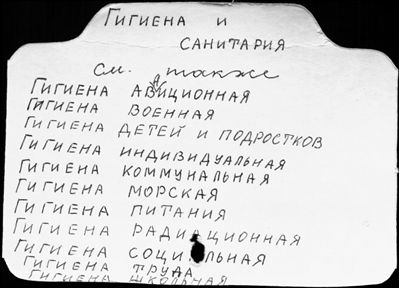 Гигиена и
санитария
см. также
Гигиена авиационная
Гигиена военная
Гигиена детей и подростков
Гигиена индивидуальная
Гигиена коммунальная
Гигиена морская
Гигиена питания
Гигиена радиационная
Гигиена социальная
Гигиена труда
Гигиена школьная